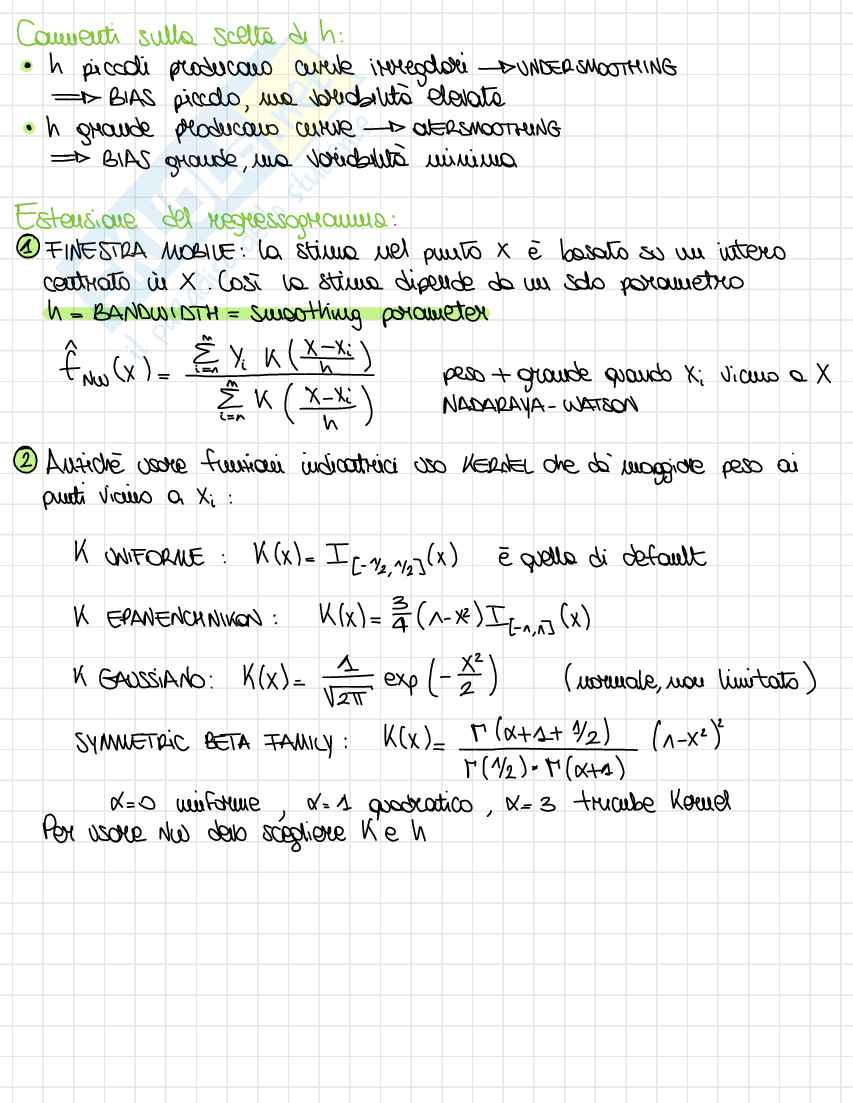 Commenti sulla scelta di h:
• h piccoli producono curve irregolari → UNDERSMOOTHING
⟹ BIAS piccolo, ma variabilità elevata
• h grande producono curve → OVERSMOOTHING
⟹ BIAS grande, ma variabilità minima
Estensione del regressogramma:
① FINESTRA MOBILE: la stima nel punto x è basato su un intero
centrato in x. Così la stima dipende da un solo parametro
h = BANDWIDTH = smoothing parameter
f̂_NW(x) = (∑_{i=1}^n Y_i K((x-x_i)/h)) / (∑_{i=1}^n K((x-x_i)/h))
peso + grande quando x_i vicino a x
NADARAYA-WATSON
② Anziché usare funzioni indicatrici uso KERNEL che dà maggiore peso ai
punti vicino a x_i :
K UNIFORME : K(x) = I_[-1/2,1/2](x) è quello di default
K EPANENCHNIKON : K(x) = 3/4 (1-x²) I_[-1,1](x)
K GAUSSIANO: K(x) = 1/√2π exp(-x²/2) (normale, non limitato)
SYMMETRIC BETA FAMILY : K(x) = Γ(α+1+1/2) / (Γ(1/2)·Γ(α+1)) (1-x²)²
α=0 uniforme, α=1 quadratico, α=3 tricube Kernel
Per usare NW devo scegliere K e h